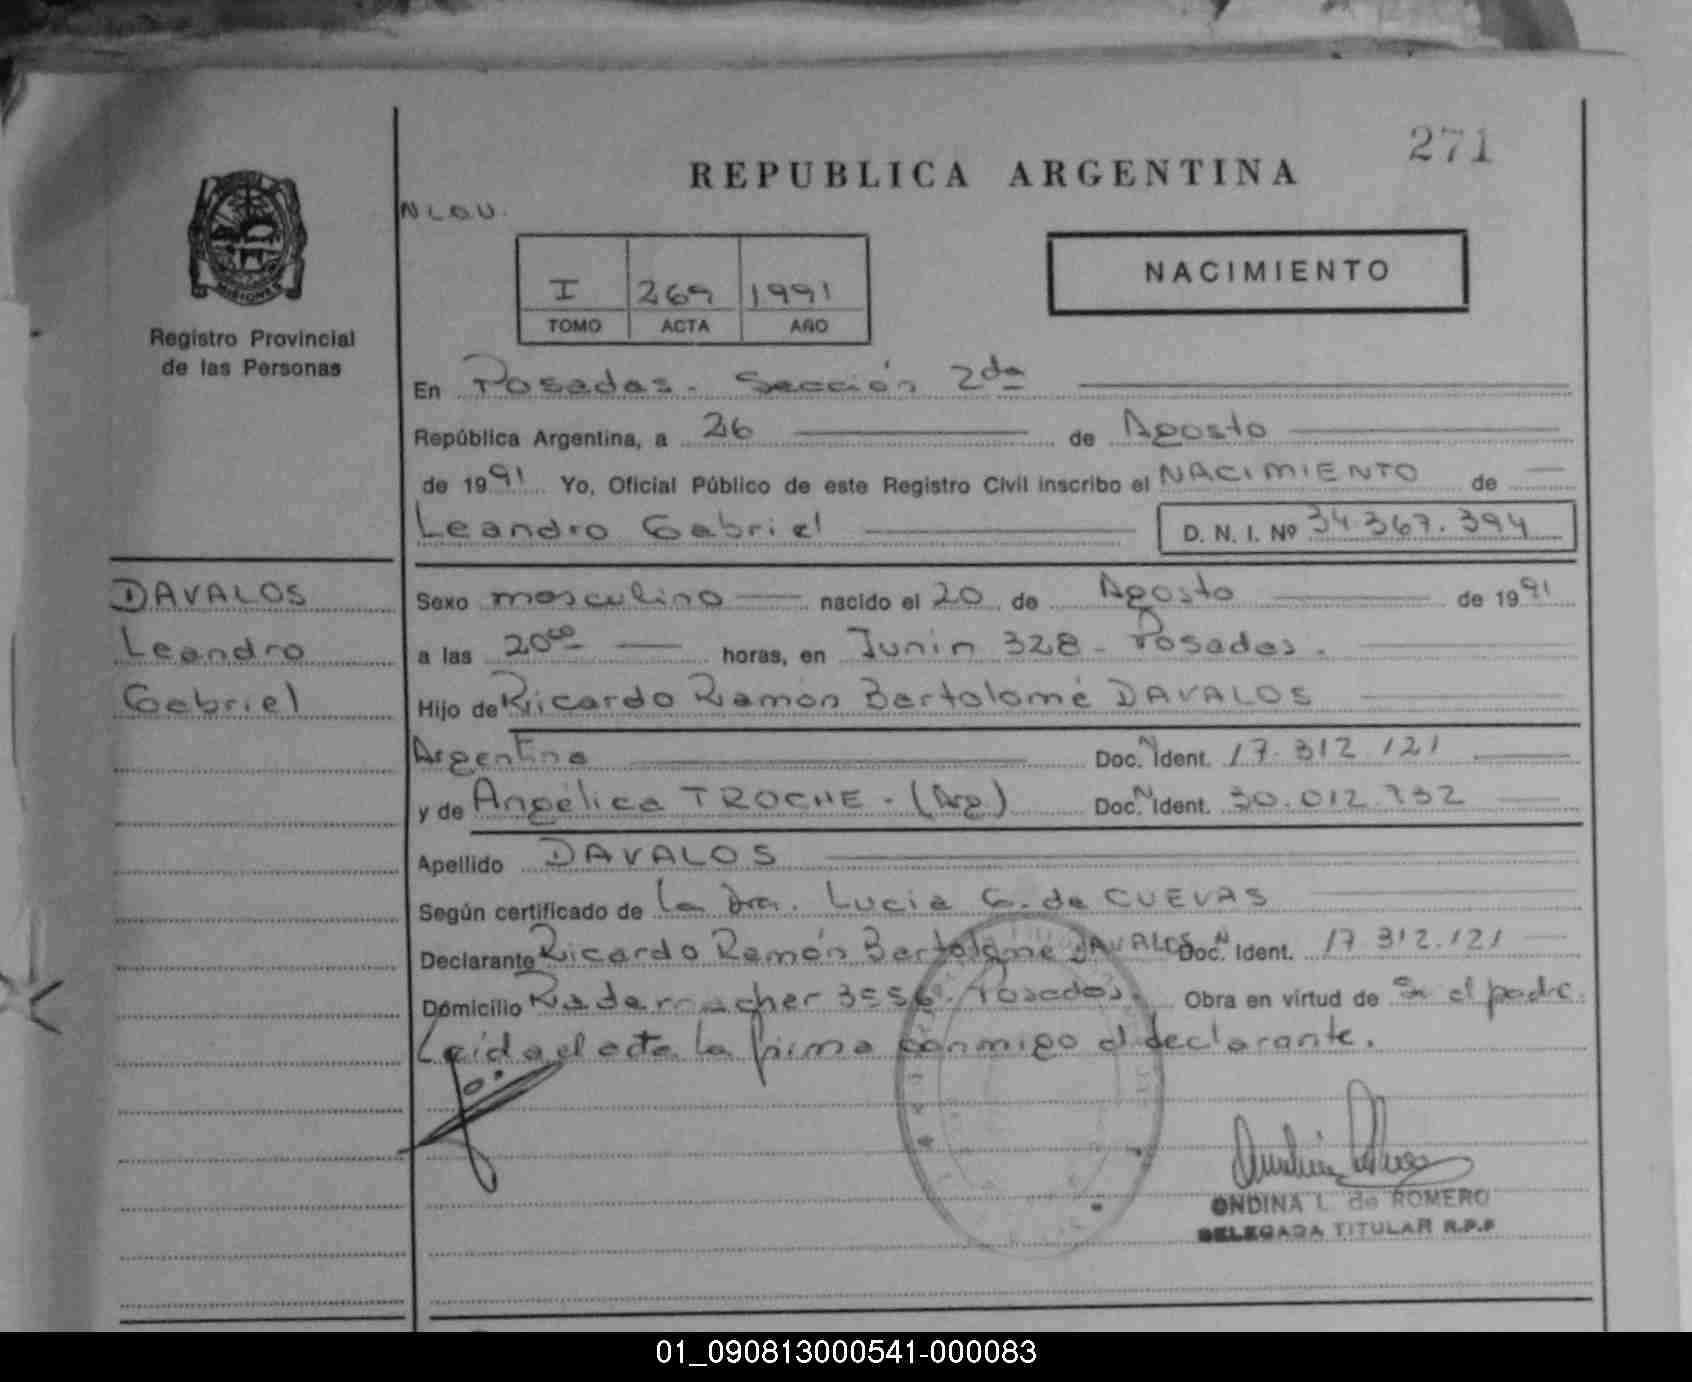 271
REPUBLICA ARGENTINA
MISIONES
Registro Provincial
de las Personas
I 269 1991
TOMO ACTA AÑO
NACIMIENTO
En Posadas. Sección 2da
República Argentina, a 26 de Agosto
de 1991 Yo, Oficial Público de este Registro Civil inscribo el NACIMIENTO de
Leandro Gabriel D. N. I. Nº 34.367.394
DAVALOS
Leandro
Gabriel
Sexo masculino nacido el 20 de Agosto de 1991
a las 20 00 horas, en Junin 328 - Posadas.
Hijo de Ricardo Ramón Bartolomé DAVALOS
Argentina Doc. N Ident. 17.312.121
y de Angélica TROCHE - (Arg) Doc. N Ident.
Apellido DAVALOS
Según certificado de La Dra. Lucia G. de CUEVAS
Declarante Ricardo Ramón Bartolomé DAVALOS Doc. N Ident. 17.312.121
Domicilio 3556. Posadas. Obra en virtud de Se el padre.
Leida el acta la firma conmigo el declarante.
ONDINA L. de ROMERO
DELEGADA TITULAR R.P.P
01_090813000541-000083